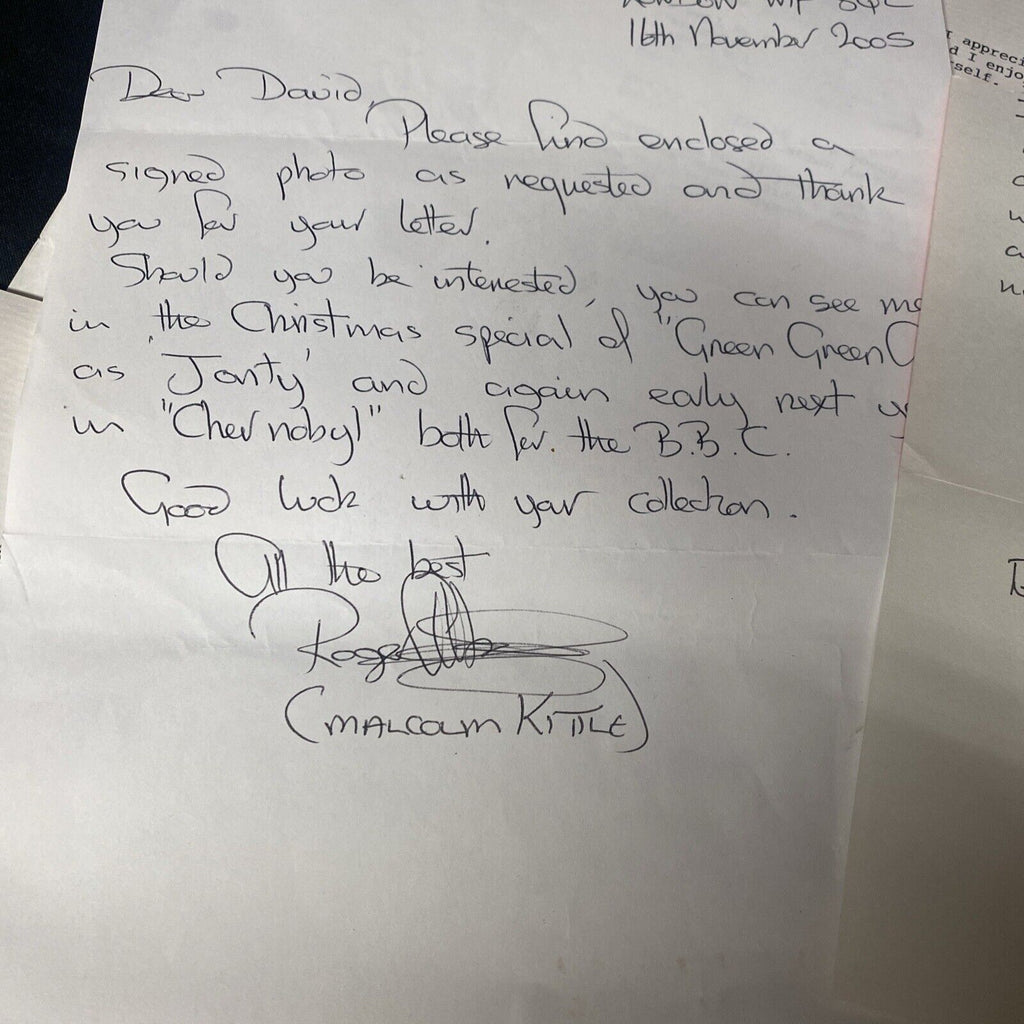 16th November 2005
Dear David,
Please find enclosed a
signed photo as requested and thank
you for your letter.
Should you be interested, you can see me
in the Christmas special of "Green Green G
as 'Jonty' and again early next y
in "Chernobyl" both for the B.B.C.
Good luck with your collection.
All the best
Roger
(MALCOLM KITTLE)
I appreci
d I enjo
self.